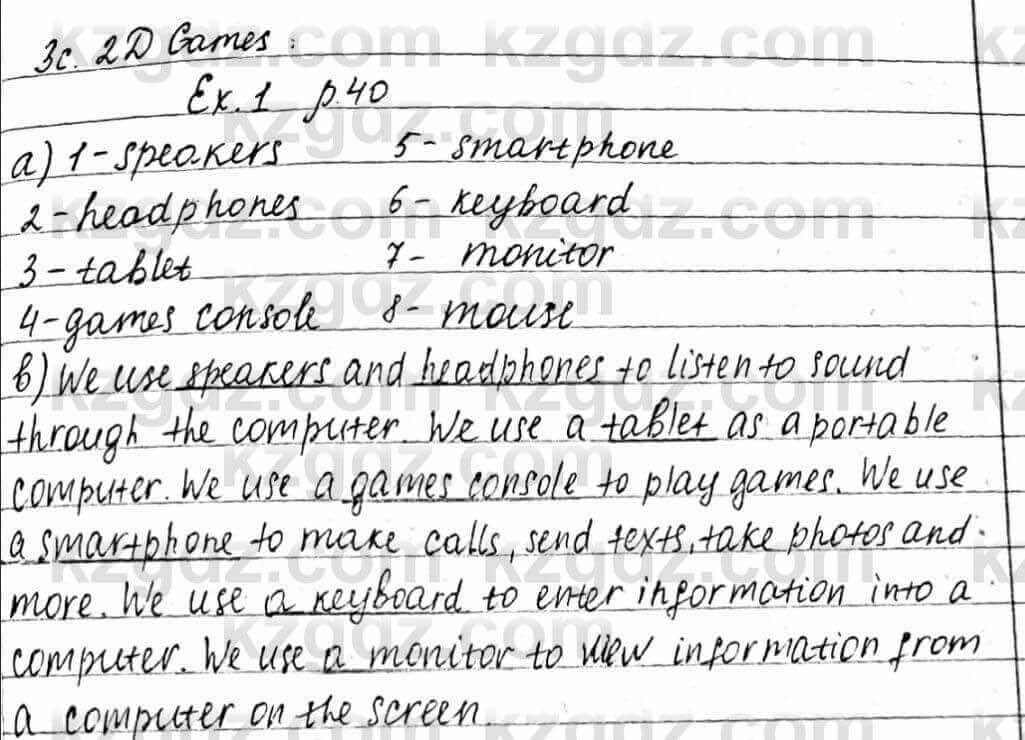 3c. 2D Games:
Ex. 1 p.40
a) 1-speakers 5- smartphone
2-headphones 6- keyboard
3-tablet 7- monitor
4-games console 8- mouse
b) We use speakers and headphones to listen to sound
through the computer. We use a tablet as a portable
computer. We use a games console to play games. We use
a smartphone to make calls, send texts, take photos and
more. We use a keyboard to enter information into a
computer. We use a monitor to view information from
a computer on the screen.
kzgdz.com